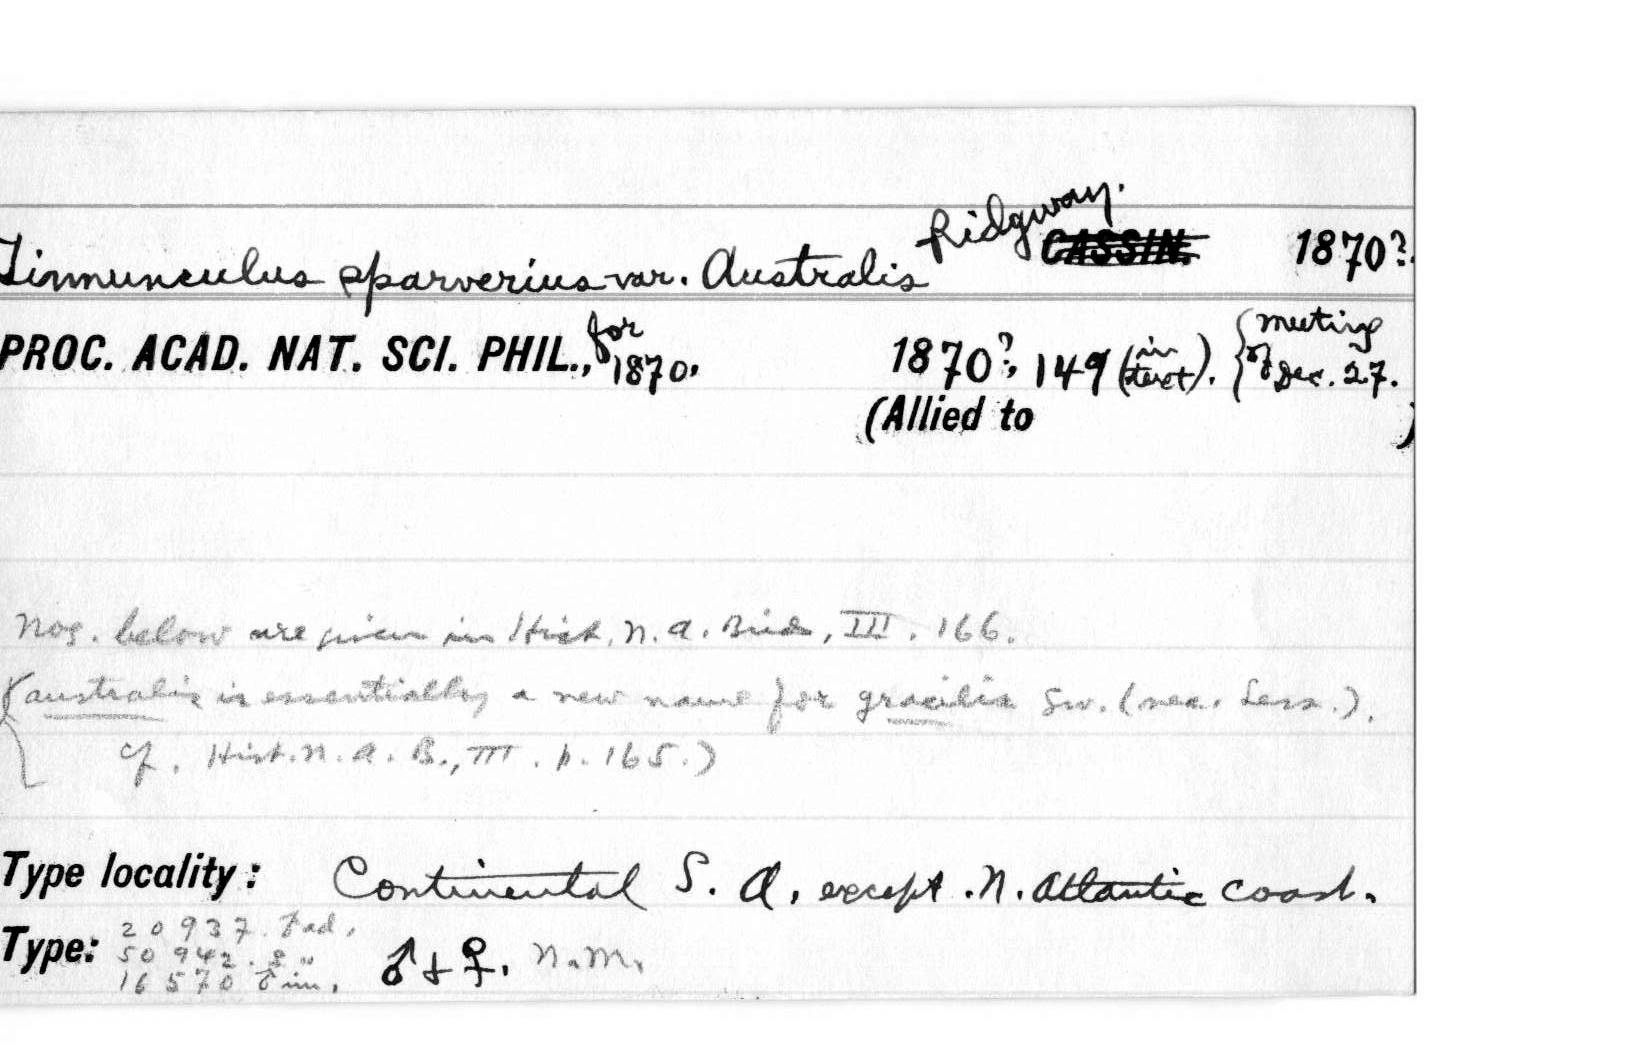 Tinnunculus sparverius var. Australis Ridgway. CASSIN. 1870?.
PROC. ACAD. NAT. SCI. PHIL., for 1870. 1870?, 149 (in text). {meeting of Dec. 27.
(Allied to )
Nos. below are given in Hist. N. A. Birds, III. 166.
(australis is essentially a new name for gracilis Sw. (nec. Less.).
cf. Hist. N. A. B., III. p. 165.)
Type locality: Continental S. A. except N. Atlantic coast.
20937. ad.
Type: 50942. ♀ "
16570 ♂ im. ♂ + ♀. N.M.